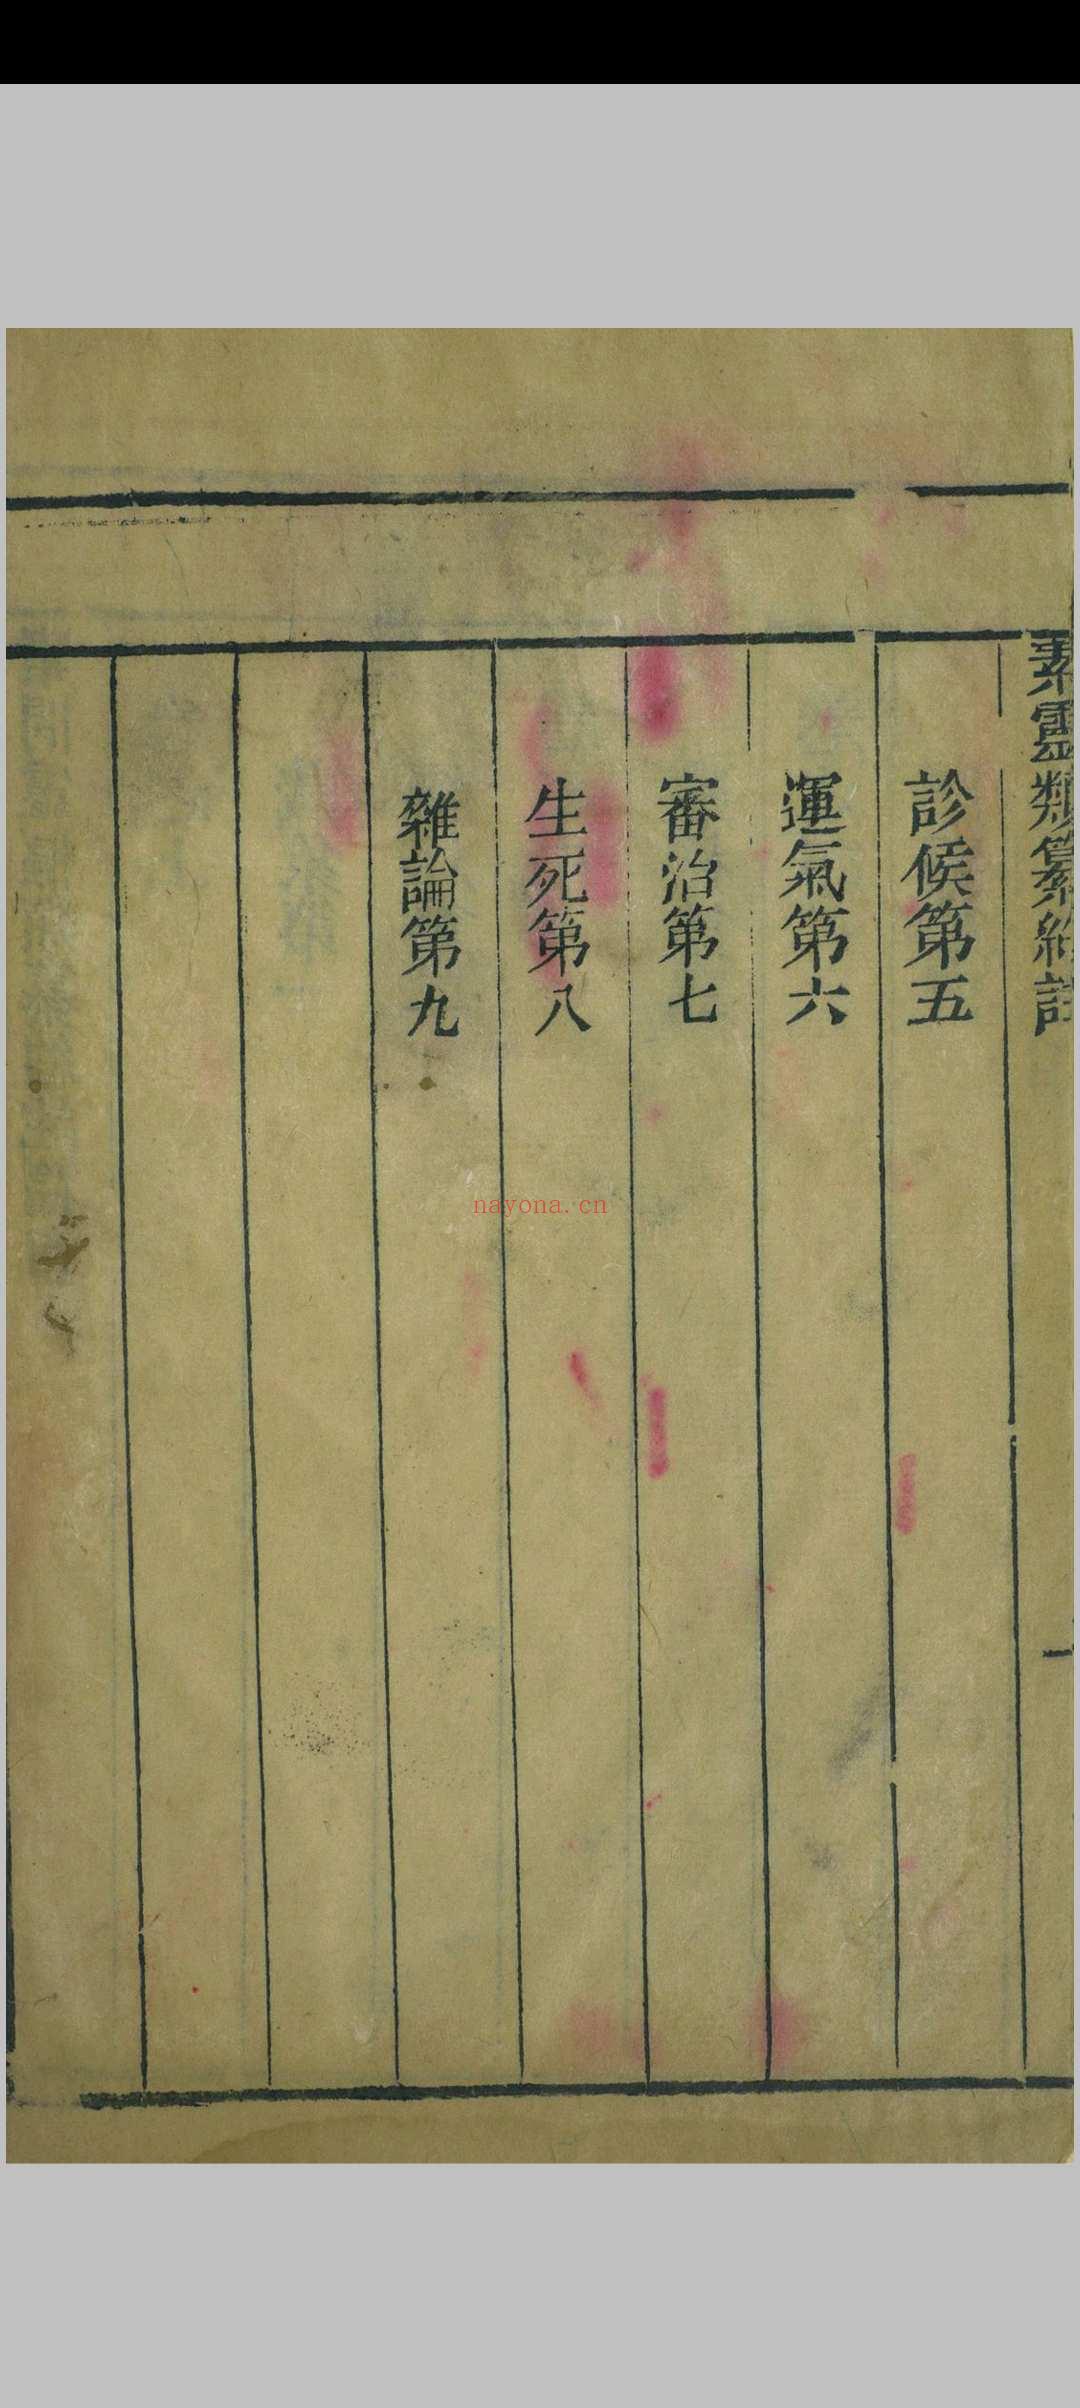 素靈類纂約註
診候第五
運氣第六
審治第七
生死第八
雜論第九
一
nayona.cn